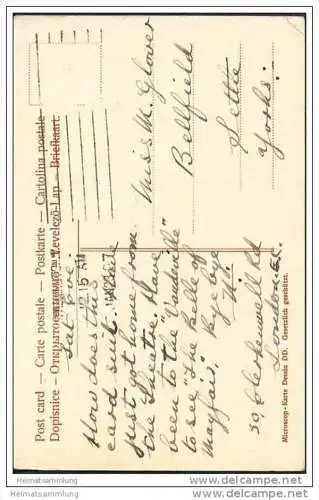 Post card — Carte postale — Postkarte — Cartolina postale
Dopisnice — Открытое письмо — Levelezö-Lap — Briefkaart.
12.15 AM
Sat. eve
How does this
card suit. Have
just got home from
the Theatre. Have
been to the "Vaudeville"
to see "The Belle of
Mayfair". Bye bye
30, Clerkenwell Rd
London E.C.
Miss M. Glover
Bellfield
Settle
Yorks.
Microscop-Karte Dessin DD. Gesetzlich geschützt.
Heimatsammlung
Heimatsammlung.com